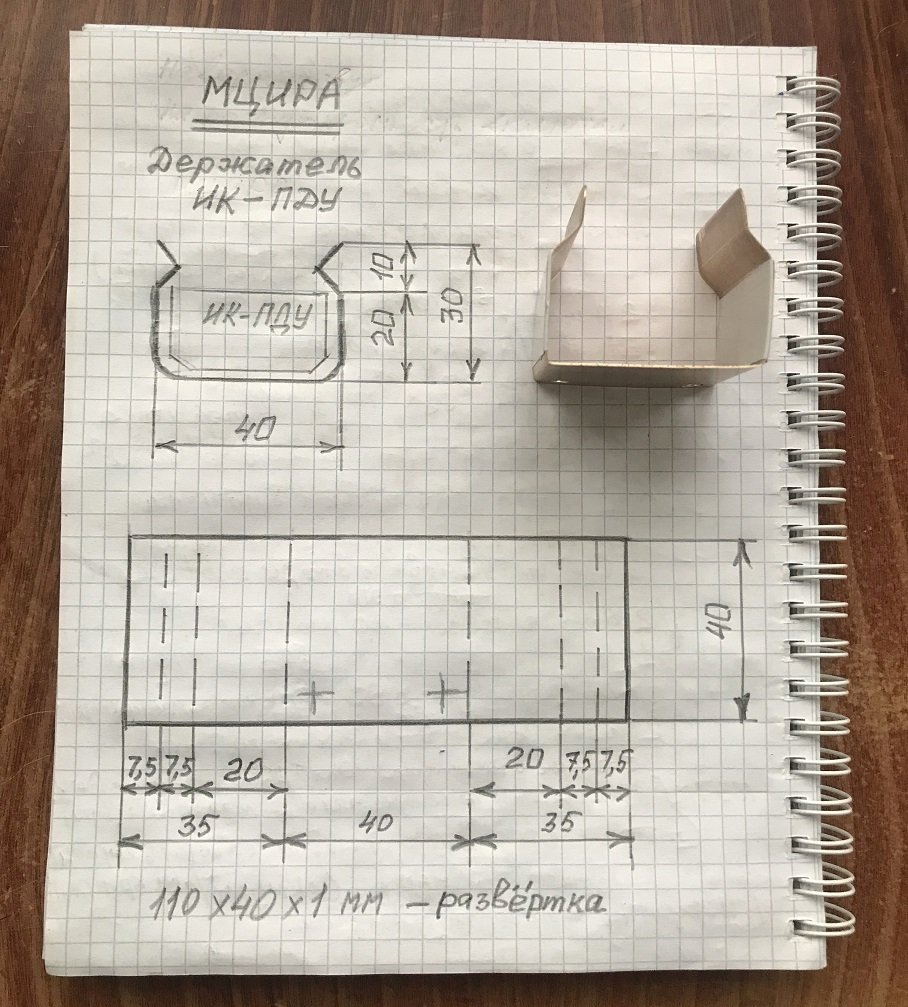 МЦИРА
Держатель
ИК-ПДУ
ИК-ПДУ
10
20
30
40
40
7,5 7,5 20 20 7,5 7,5
35 40 35
110 x 40 x 1 мм - развёртка